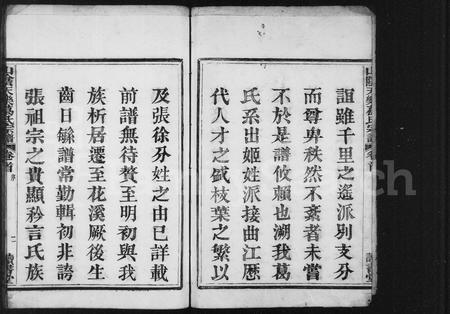 誼雖千里之遙派別支分
而尊卑秩然不紊者未嘗
不於是譜攸賴也溯我葛
氏系出姬姓派接曲江歷
代人才之盛枝葉之繁以
及張徐分姓之由已詳載
前譜無待贅至明初與我
族析居遷至花溪厥後生
齒日緐譜常勤輯初非誇
張祖宗之貴顯矜言氏族
山陰天樂葛氏宗譜 卷首 序